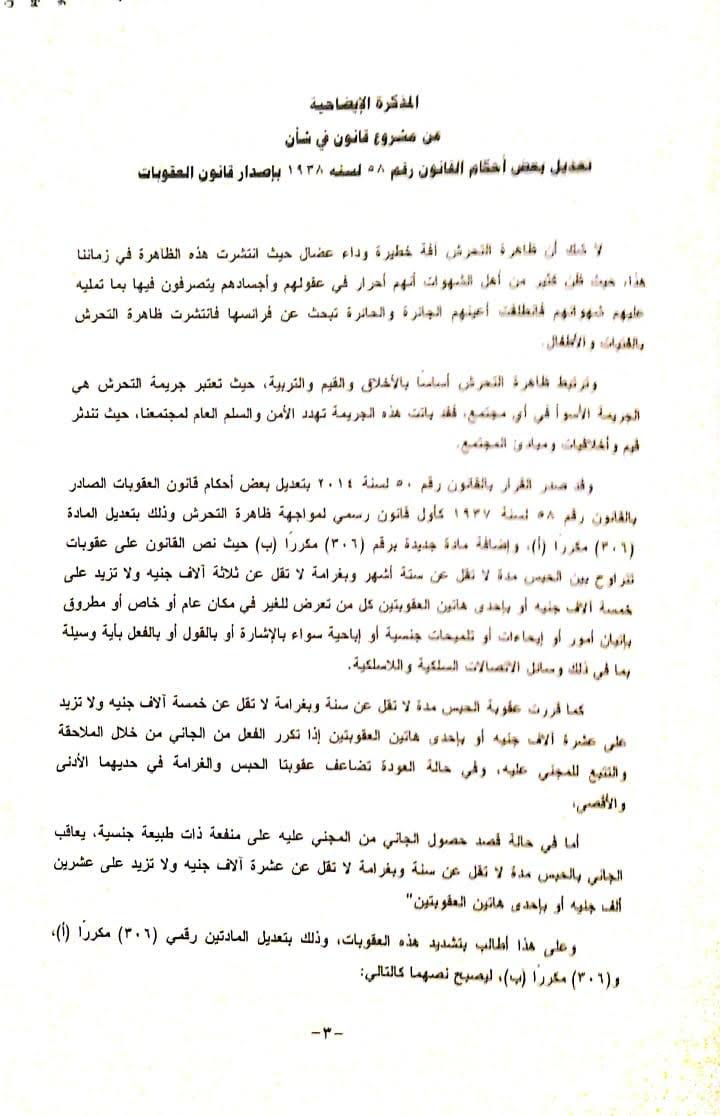 المذكرة الإيضاحية
عن مشروع قانون في شأن
تعديل بعض أحكام القانون رقم ٥٨ لسنه ١٩٣٨ بإصدار قانون العقوبات
لا شك أن ظاهرة التحرش آفة خطيرة وداء عضال حيث انتشرت هذه الظاهرة في زماننا
هذا، حيث ظن كثير من أهل الشهوات أنهم أحرار في عقولهم وأجسادهم يتصرفون فيها بما تمليه
عليهم شهواتهم فانطلقت أعينهم الجائرة والحائرة تبحث عن فرائسها فانتشرت ظاهرة التحرش
بالفتيات والأطفال.
وترتبط ظاهرة التحرش أساسًا بالأخلاق والقيم والتربية، حيث تعتبر جريمة التحرش هي
الجريمة الأسوأ في أي مجتمع، فقد باتت هذه الجريمة تهدد الأمن والسلم العام لمجتمعنا، حيث تندثر
قيم وأخلاقيات ومبادئ المجتمع.
وقد صدر القرار بالقانون رقم ٥٠ لسنة ٢٠١٤ بتعديل بعض أحكام قانون العقوبات الصادر
بالقانون رقم ٥٨ لسنة ١٩٣٧ كأول قانون رسمي لمواجهة ظاهرة التحرش وذلك بتعديل المادة
(٣٠٦) مكررًا (أ)، وإضافة مادة جديدة برقم (٣٠٦) مكررًا (ب) حيث نص القانون على عقوبات
تتراوح بين الحبس مدة لا تقل عن ستة أشهر وبغرامة لا تقل عن ثلاثة آلاف جنيه ولا تزيد على
خمسة آلاف جنيه أو بإحدى هاتين العقوبتين كل من تعرض للغير في مكان عام أو خاص أو مطروق
بإتيان أمور أو إيحاءات أو تلميحات جنسية أو إباحية سواء بالإشارة أو بالقول أو بالفعل بأية وسيلة
بما في ذلك وسائل الاتصالات السلكية واللاسلكية.
كما قررت عقوبة الحبس مدة لا تقل عن سنة وبغرامة لا تقل عن خمسة آلاف جنيه ولا تزيد
على عشرة آلاف جنيه أو بإحدى هاتين العقوبتين إذا تكرر الفعل من الجاني من خلال الملاحقة
والتتبع للمجني عليه، وفي حالة العودة تضاعف عقوبتا الحبس والغرامة في حديهما الأدنى
والأقصى،
أما في حالة قصد حصول الجاني من المجني عليه على منفعة ذات طبيعة جنسية، يعاقب
الجاني بالحبس مدة لا تقل عن سنة وبغرامة لا تقل عن عشرة آلاف جنيه ولا تزيد على عشرين
ألف جنيه أو بإحدى هاتين العقوبتين"
وعلى هذا أطالب بتشديد هذه العقوبات، وذلك بتعديل المادتين رقمي (٣٠٦) مكررًا (أ)،
و(٣٠٦) مكررًا (ب)، ليصبح نصهما كالتالي:
-٣-